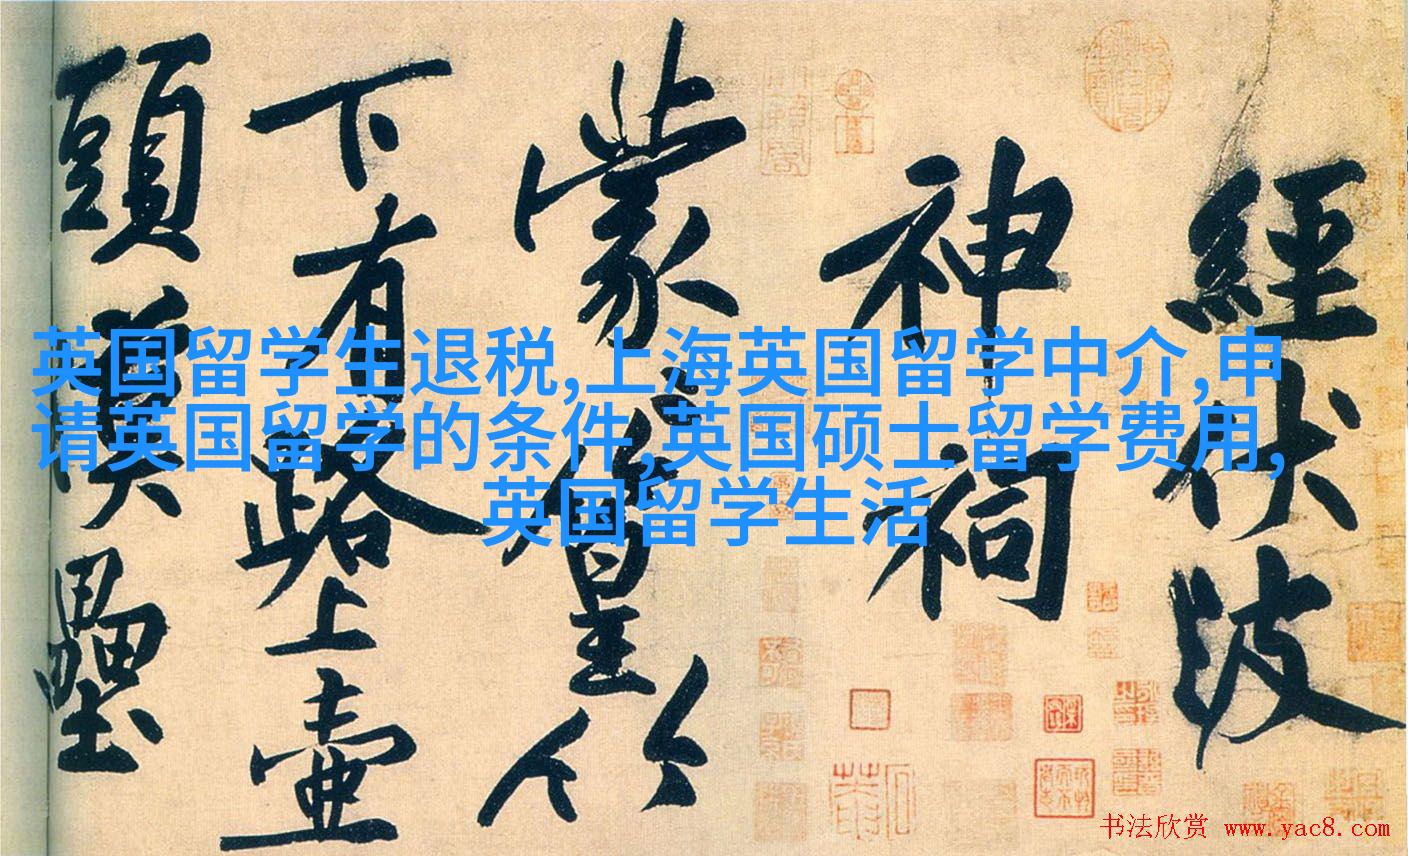 英国留学生退税,上海英国留学中介,申
请英国留学的条件,英国硕士留学费用,
英国留学生活
經伏波
神祠
蒙〻篁竹
下有路上壺
頭漢壘
书法欣赏 www.yac8.com